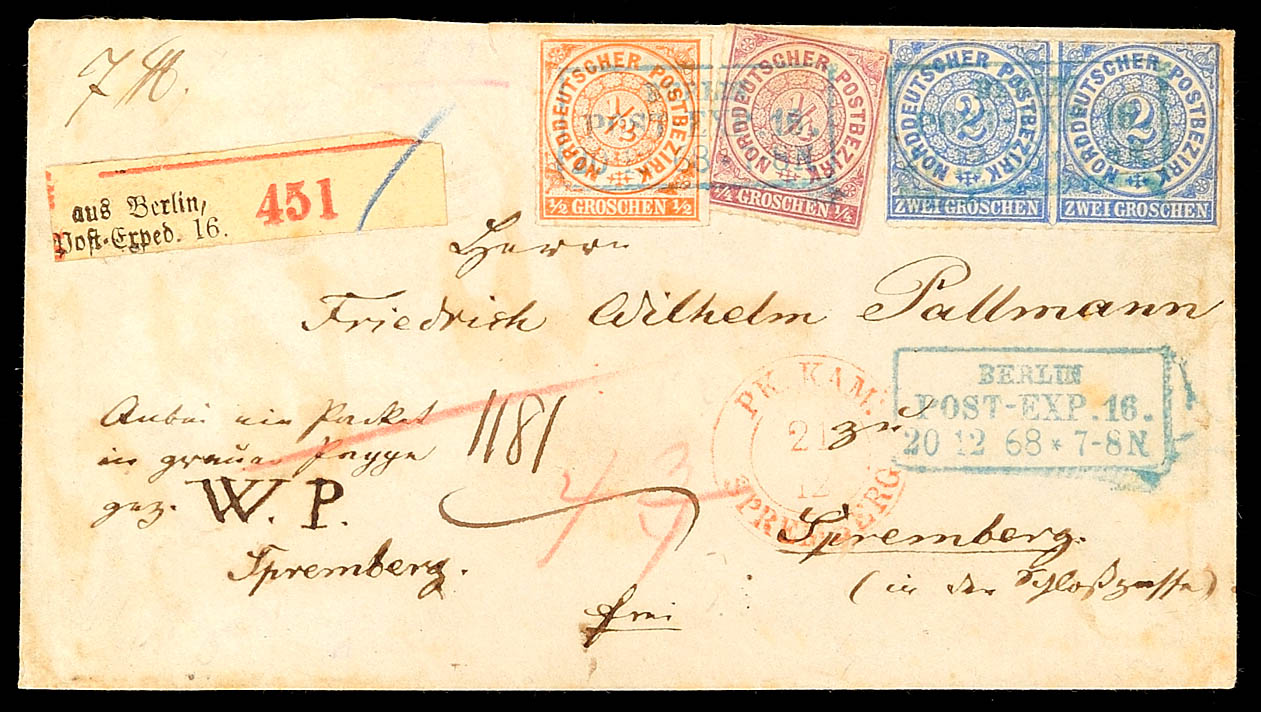 7 ℔.
NORDDEUTSCHER POSTBEZIRK
1/2
1/2 GROSCHEN 1/2
NORDDEUTSCHER POSTBEZIRK
1/4 GROSCHEN 1/4
NORDDEUTSCHER POSTBEZIRK
2
ZWEI GROSCHEN
NORDDEUTSCHER POSTBEZIRK
2
ZWEI GROSCHEN
POST-EXP. 16.
68 * 7-8N
aus Berlin,
Post-Exped. 16.
451
Herrn
Friedrich Wilhelm Pallmann
BERLIN
POST-EXP. 16.
20 12 68 * 7-8N
PK. KAM.
21
12
SPREMBERG
zu
Anbei ein Packet
in grauer Pappe
gez. W. P.
Spremberg.
1181
4
3
Spremberg.
(in der Schloßgasse)
frei